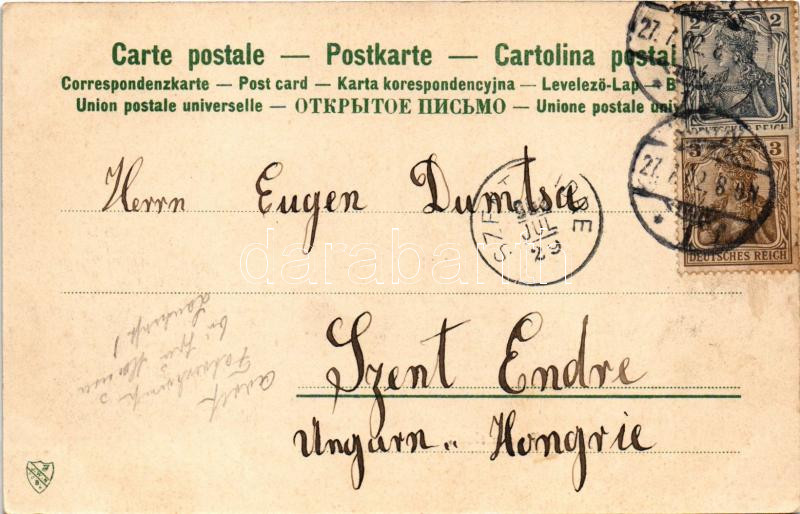 Carte postale — Postkarte — Cartolina postal
Correspondenzkarte — Post card — Karta korespondencyjna — Levelező-Lap — B
Union postale universelle — ОТКРЫТОЕ ПИСЬМО — Unione postale uni
2 2
DEUTSCHES REICH
27. 7. 02.
3 3
DEUTSCHES REICH
27. 7. 02. 8-9N
Herrn Eugen Dumtsa
JUL
29
darabanth
Szent Endre
Ungarn „ Hongrie